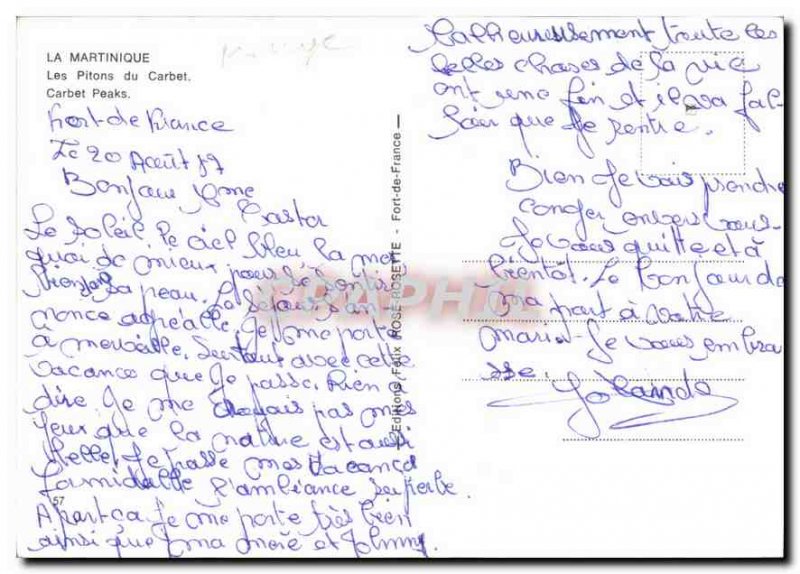 LA MARTINIQUE
Les Pitons du Carbet.
Carbet Peaks.
Fort-de France
Le 20 Août 87
Bonjour Mme
Castor
Le Soleil, le ciel bleu la mer
quoi de mieux pour se sentir
bien sa peau. Le s'an
nonce agréable. Je me porte
à merveille. Surtout avec cette
vacance que je passe. Rien à
dire je me pas mes
yeux que la nature est aussi
belle. Je passe mes vacances
formidable l'ambiance superbe.
57
A part ça je me porte très bien
ainsi que ma mère et Johnny.
Editions Félix ROSE-ROSETTE - Fort-de-France
Malheureusement toute ces
belles choses de la vie
ont une fin et il va fal-
loir que je rentre.
Bien je vais prendre
conger envers vous
Je vous quitte et à
bientôt. Le bonjour de
ma part à votre
mari. Je vous embra
sse.
Yolande